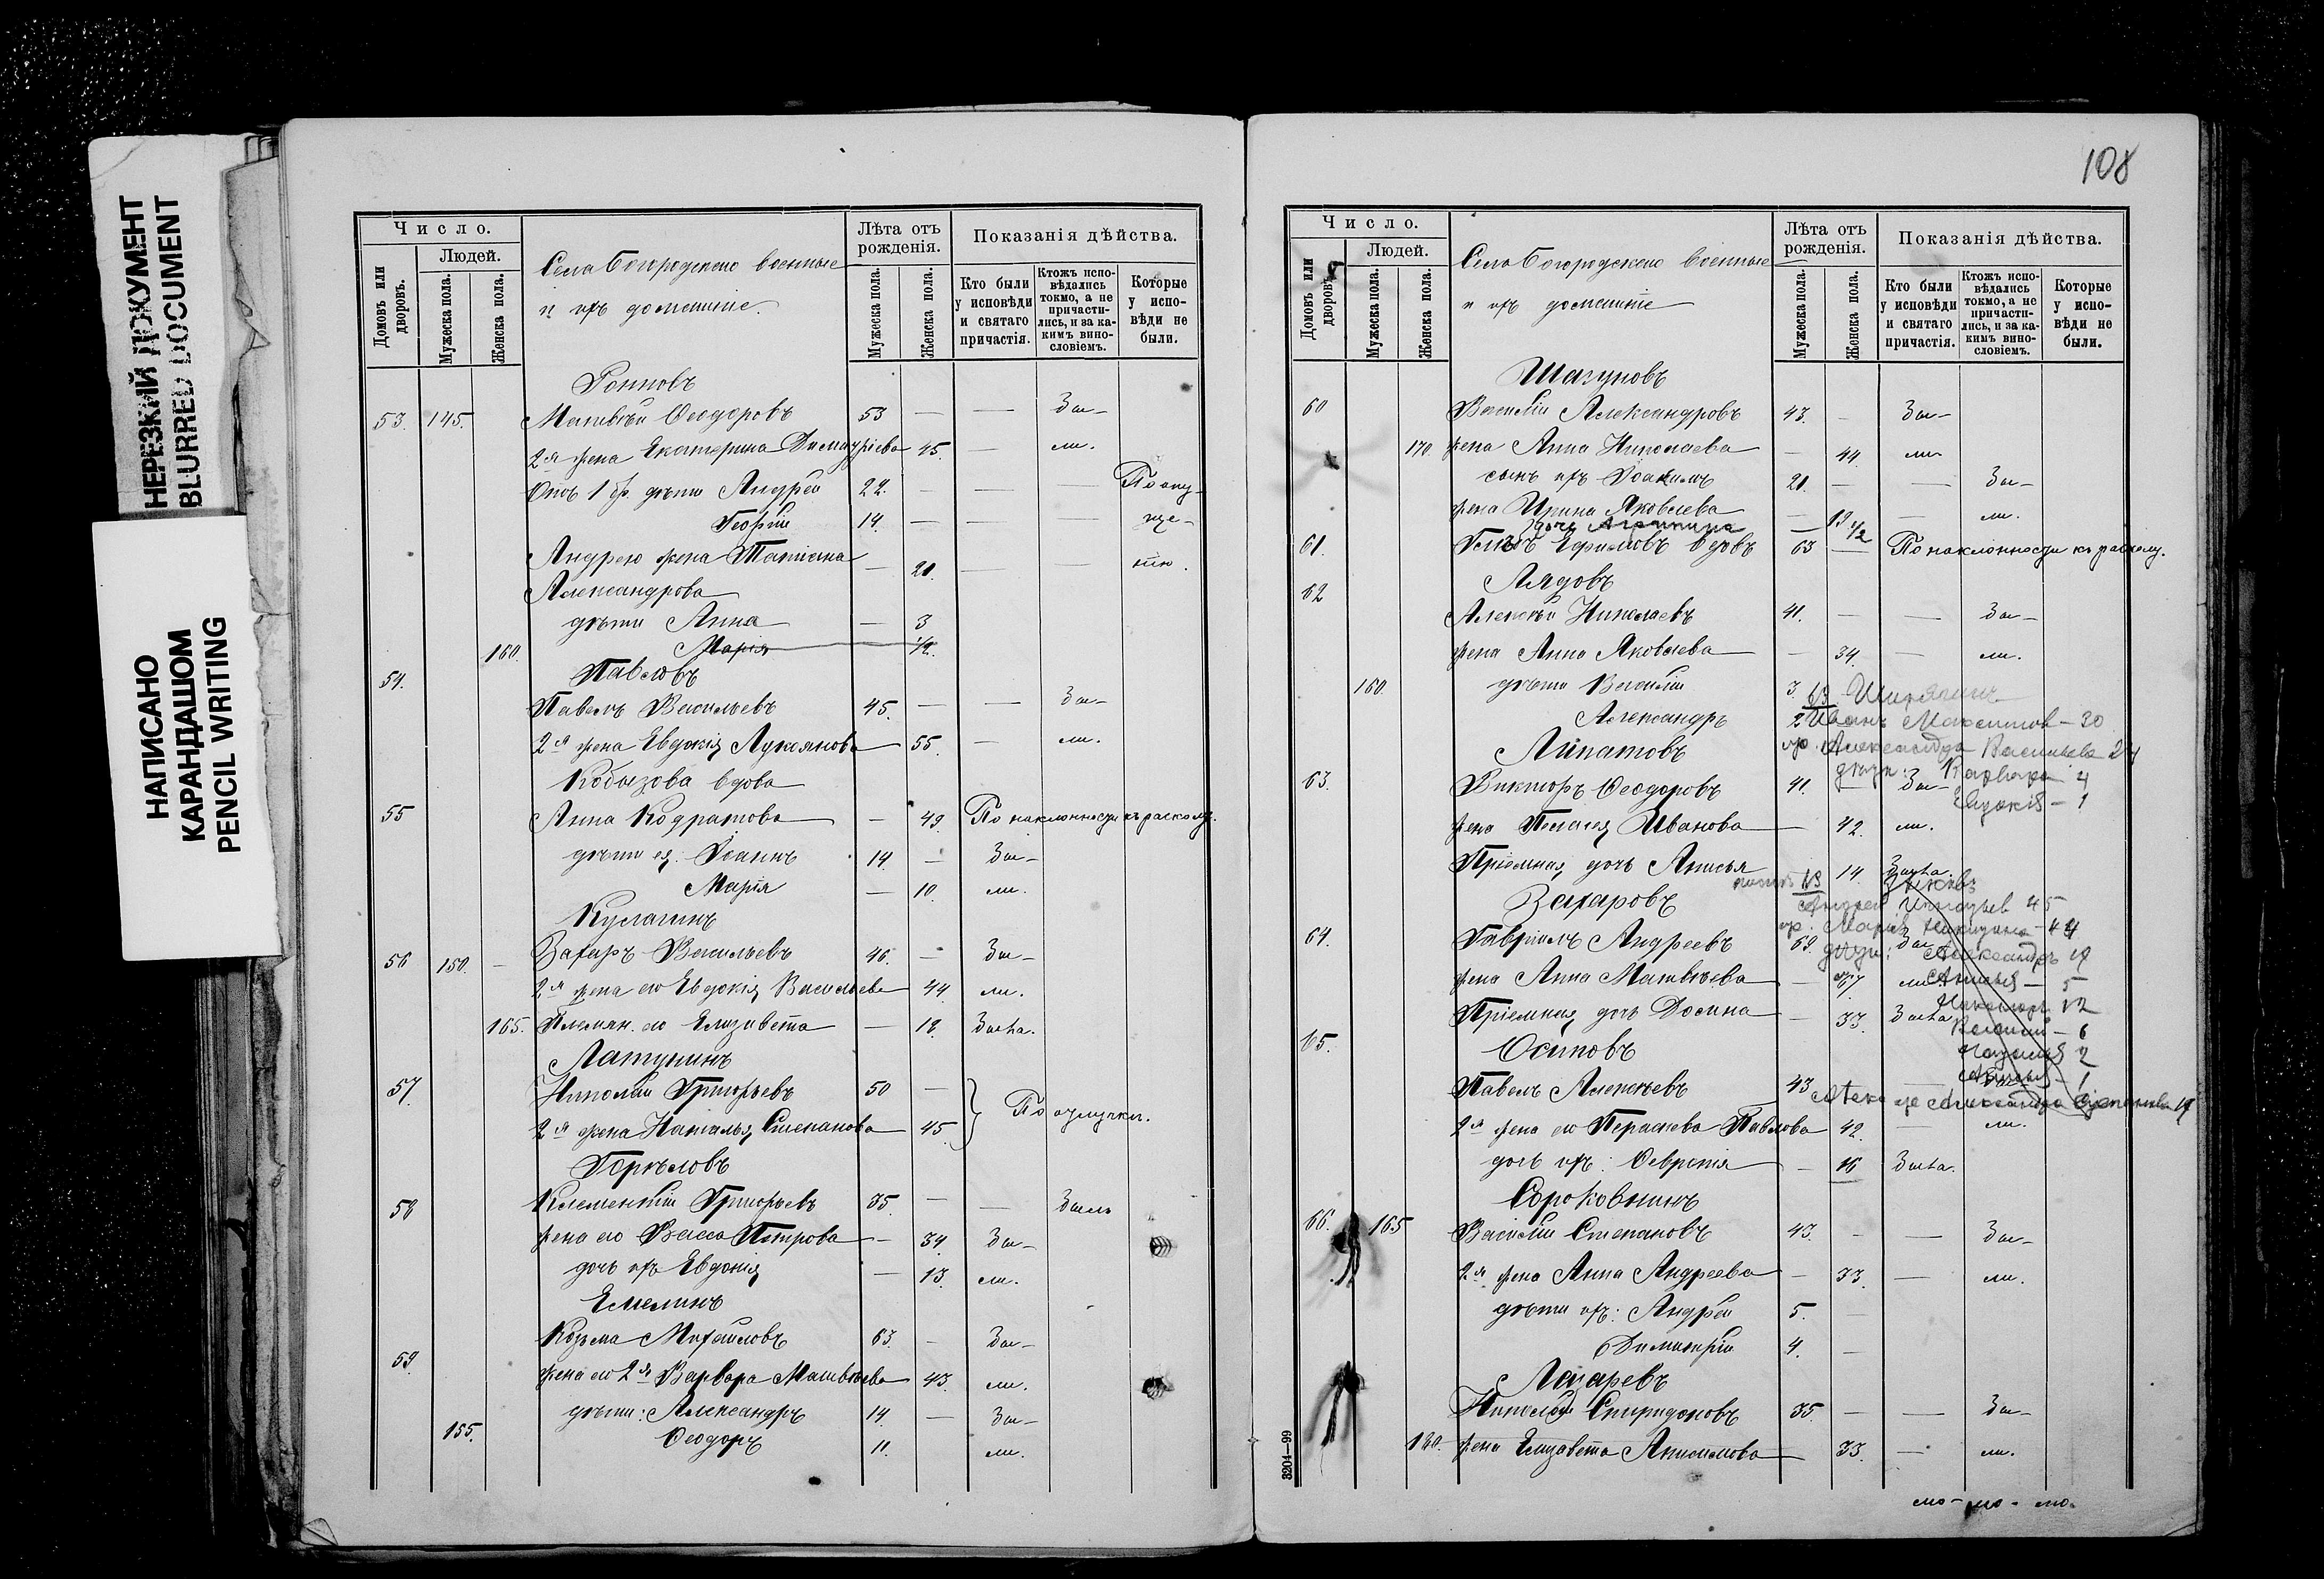 НЕРЕЗКИЙ ДОКУМЕНТ
BLURRED DOCUMENT
НАПИСАНО
КАРАНДАШОМ
PENCIL WRITING
Число.
Домовъ или дворовъ.
Людей.
Мужеска пола.
Женска пола.
Села Богородскаго военные
и ихъ домашніе.
Лѣта отъ рожденія.
Мужеска пола.
Женска пола.
Показанія дѣйства.
Кто были у исповѣди и святаго причастія.
Ктожъ исповѣдались токмо, а не причастились, и за какимъ винословіемъ.
Которые у исповѣди не были.
53. 145. Матвѣй Ѳеодоровъ 53 — — Бы-
2я жена Екатерина Димитріева 45. — ли.
Отъ 1 бр. дѣти Андрей 22. — — — По опу-
Георгій 14. — — — ще-
Андрею жена Татіана — 21. — — нію.
Александрова
дѣти Анна — 3
160. Марія 1/2.
54. Павловъ
Павелъ Васильевъ 45. — — Бы-
2я жена Евдокія Лукіянова 55. — ли.
Кобызова вдова
55 Анна Кодратова — 49. По наклонности къ расколу.
дѣти ея: Іоаннъ 14. — Бы-
Марія — 10. ли.
Кулагинъ
56 150. — Захаръ Васильевъ 46. — Бы-
2я жена его Евдокія Васильева 44. ли.
165. Племян. его Елизавета — 18. Была.
Латунинъ
57. Николай Григорьевъ 50 — По отлучки.
2я жена Наталья Степанова 45.
Горѣловъ
58 Клементій Григорьевъ 35. — — Былъ
жена его Васса Петрова — 34. Бы-
дочь ихъ Евдокія — 13. ли.
Емелинъ
59. Козьма Михайловъ 63. — Бы-
жена его 2я Варвара Матвѣева 43. ли.
дѣти: Александръ 14. — Бы-
155. Ѳеодоръ 11. ли.
108
Число.
Домовъ или дворовъ.
Людей.
Мужеска пола.
Женска пола.
Села Богородскаго военные
и ихъ домашніе
Лѣта отъ рожденія.
Мужеска пола.
Женска пола.
Показанія дѣйства.
Кто были у исповѣди и святаго причастія.
Ктожъ исповѣдались токмо, а не причастились, и за какимъ винословіемъ.
Которые у исповѣди не были.
Шагуновъ
60 Василій Александровъ 43. — Бы-
170. жена Анна Николаева — 44. ли
сынъ ихъ Іоакимъ 21. — — Бы-
жена Ирина Яковлева — 19 — ли.
дочь — 1/2
61. Ефимовъ вдовъ 63 — По наклонности къ расколу.
62 Лядовъ
Алексѣй Николаевъ 41. — — Бы-
жена Анна Яковлева — 34. — ли.
160. дѣти Василій 3
Александръ 2
Иванъ Максимов — 30
Александра Васильева 24
Варвара 4
Евдокія — 1
Липатовъ
63. Викторъ Ѳеодоровъ 41. — Бы-
жена Пелагея Иванова — 42. ли.
Пріемная дочь Анисья 14. Была.
Захаровъ
Андрей 45
Марія Никитина — 44
64. Гавріилъ Андреевъ 69. Бы
дѣти: Александръ 19
жена Анна Матвѣева — 67 ли
Пріемная дочь Домна — 33. Была
Василій — 6
65. Осиповъ
Павелъ Алексѣевъ 43
Александра Степанова 19
2я жена его Параскева Павлова 42. — ли.
дочь ихъ: Ѳевронія — 16 Была.
Сороковнинъ
66. 165 Василій Степановъ 43. — — Бы-
2я жена Анна Андреева — 33. — ли.
дѣти ихъ: Андрей 5. —
Димитрій 4. —
Лазаревъ
Николай Спиридоновъ 35. — — Бы-
180. жена Елизавета Анисимова 33. — ли.
3204—99